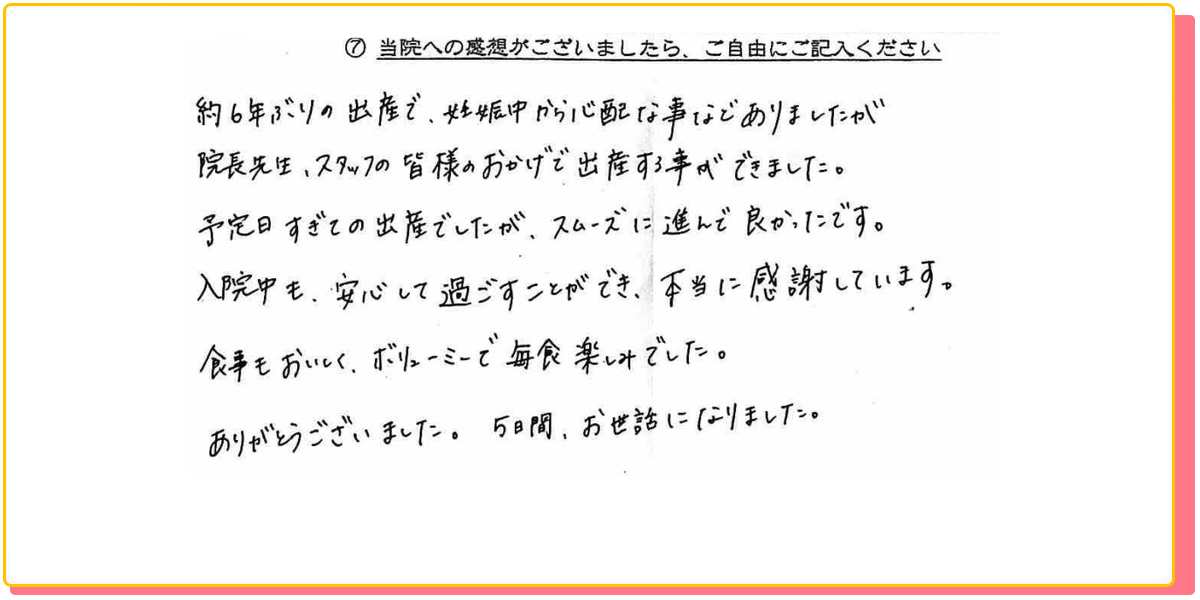 ⑦ 当院への感想がございましたら、ご自由にご記入ください
約6年ぶりの出産で、妊娠中から心配な事などありましたが
院長先生、スタッフの皆様のおかげで出産する事ができました。
予定日すぎての出産でしたが、スムーズに進んで良かったです。
入院中も、安心して過ごすことができ、本当に感謝しています。
食事もおいしく、ボリューミーで毎食楽しみでした。
ありがとうございました。 5日間、お世話になりました。